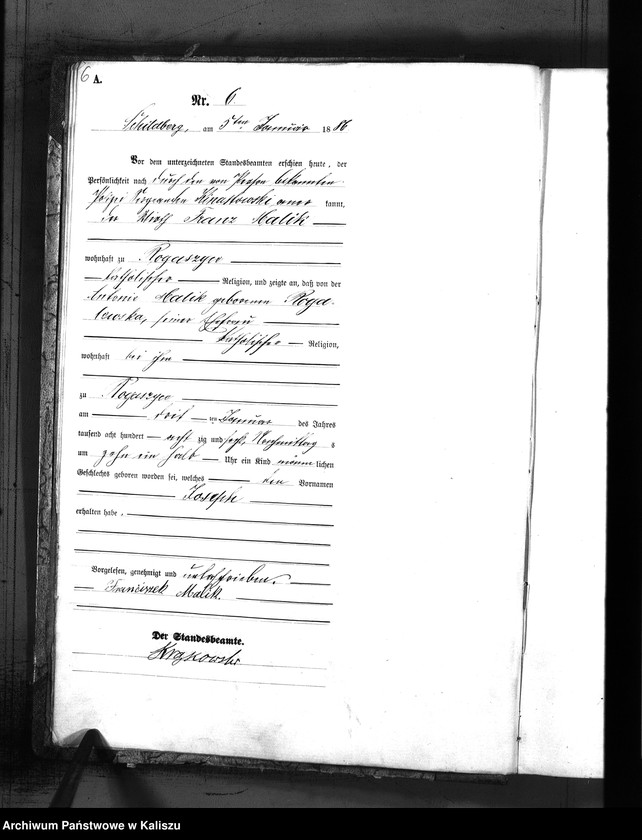 6
A.
Nr. 6
Schildberg, am 5ten Januar 1886
Vor dem unterzeichneten Standesbeamten erschien heute, der
Persönlichkeit nach durch den von Person bekannten
kannt,
der Franz Malik
wohnhaft zu Rogaszyce
katholischer Religion, und zeigte an, daß von der
Antonie Malik geborenen Roga-
lewska, seiner Ehefrau
katholischer Religion,
wohnhaft bei ihm
zu Rogaszyce
am drei ten Januar des Jahres
tausend acht hundert acht zig und sechs, Nachmittag s
um zehn ein halb Uhr ein Kind männ lichen
Geschlechts geboren worden sei, welches den Vornamen
Joseph
erhalten habe.
Vorgelesen, genehmigt und unterschrieben.
Franciszek Malik.
Der Standesbeamte.
Archiwum Państwowe w Kaliszu